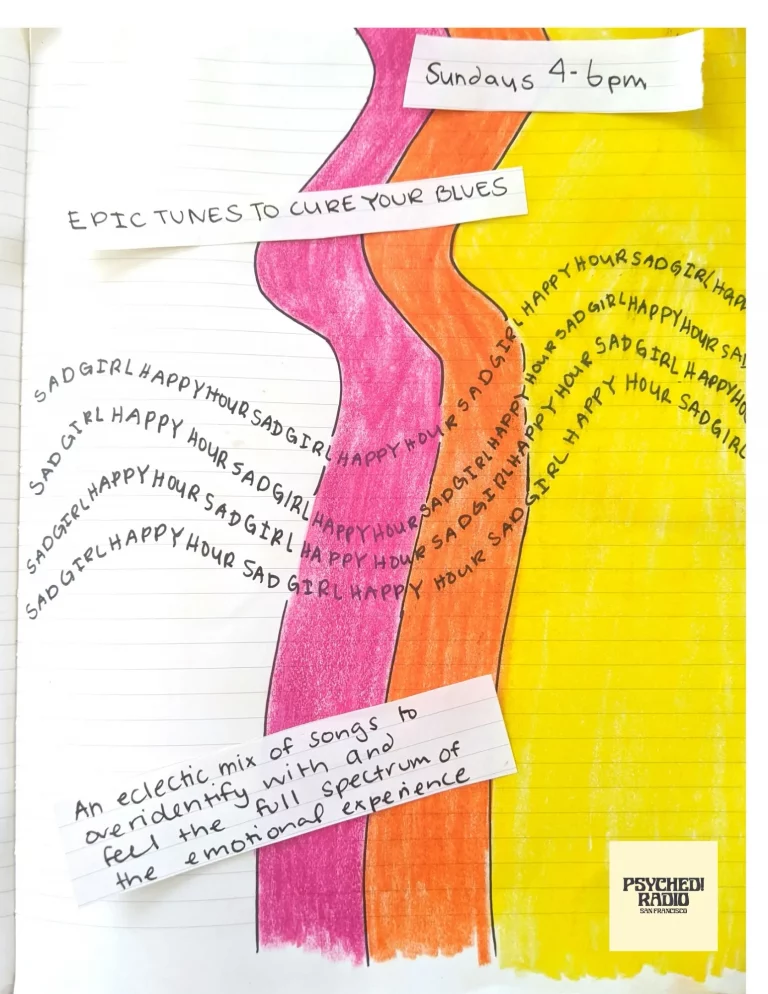 Sundays 4-6pm
EPIC TUNES TO CURE YOUR BLUES
SAD GIRL HAPPY HOUR SAD GIRL HAPPY HOUR SAD GIRL HAPPY HOUR SAD GIRL HAPP
SAD GIRL HAPPY HOUR SAD GIRL HAPPY HOUR SAD GIRL HAPPY HOUR SAD GIRL HAPPY HOUR SAD
SAD GIRL HAPPY HOUR SAD GIRL HAPPY HOUR SAD GIRL HAPPY HOUR SAD GIRL HAPPY HO
SAD GIRL HAPPY HOUR SAD GIRL HAPPY HOUR SAD GIRL HAPPY HOUR SAD GIRL
An eclectic mix of songs to
overidentify with and
feel the full spectrum of
the emotional experience
PSYCHED!
RADIO
SAN FRANCISCO